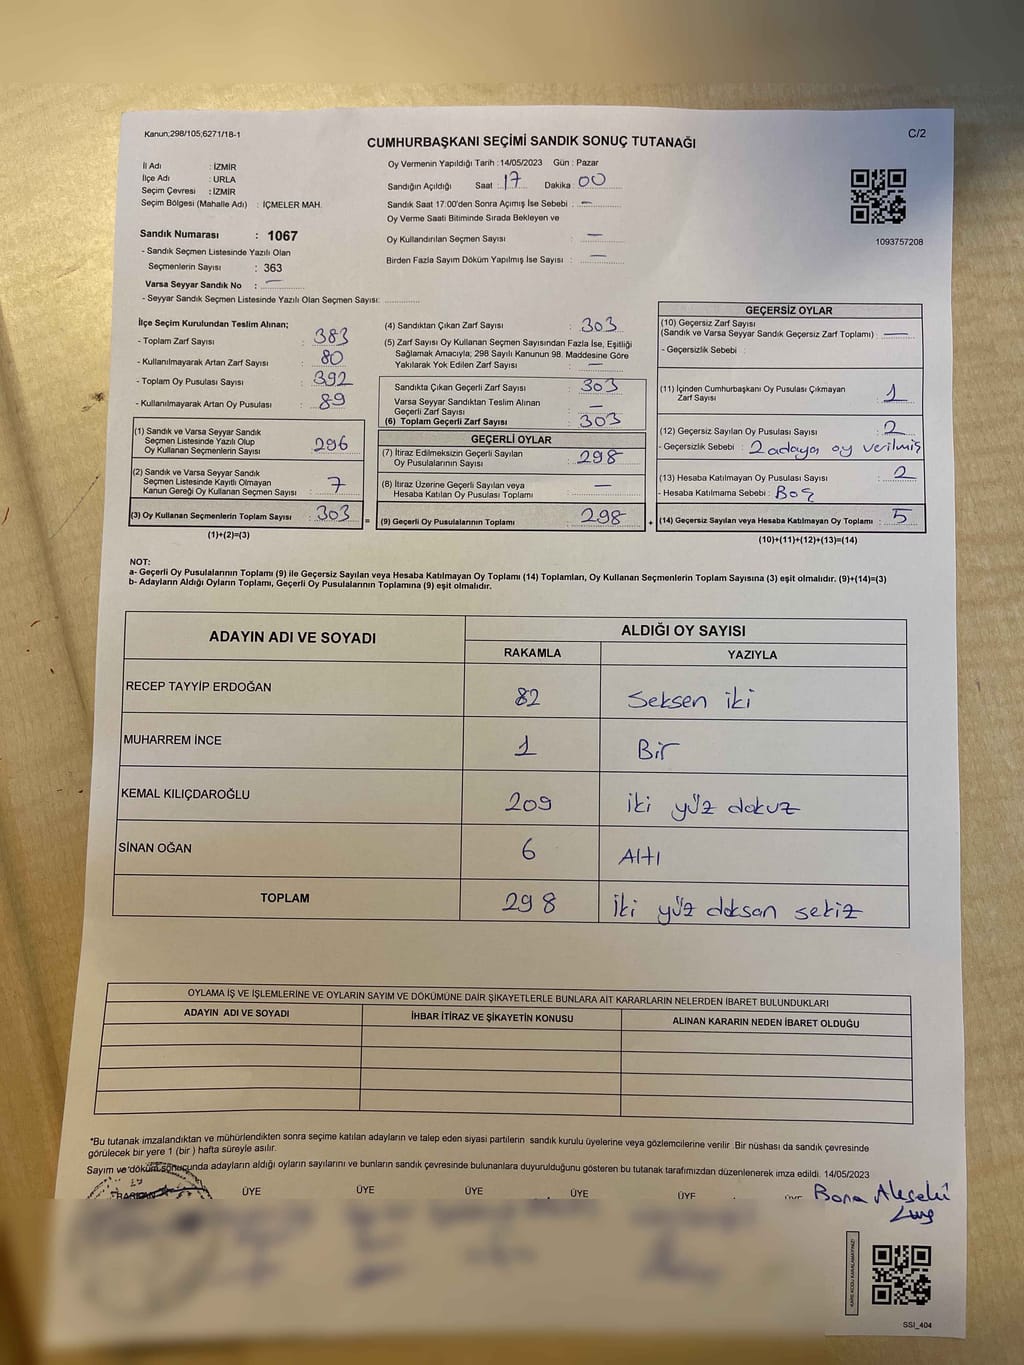 Kanun;298/105;6271/18-1
C/2
CUMHURBAŞKANI SEÇİMİ SANDIK SONUÇ TUTANAĞI
İl Adı : İZMİR
İlçe Adı : URLA
Seçim Çevresi : İZMİR
Seçim Bölgesi (Mahalle Adı) : İÇMELER MAH.
Sandık Numarası : 1067
- Sandık Seçmen Listesinde Yazılı Olan
Seçmenlerin Sayısı : 363
Varsa Seyyar Sandık No : —
- Seyyar Sandık Seçmen Listesinde Yazılı Olan Seçmen Sayısı:
Oy Vermenin Yapıldığı Tarih : 14/05/2023 Gün : Pazar
Sandığın Açıldığı Saat : 17 Dakika : 00
Sandık Saat 17:00'den Sonra Açımış İse Sebebi : —
Oy Verme Saati Bitiminde Sırada Bekleyen ve
Oy Kullandırılan Seçmen Sayısı : —
Birden Fazla Sayım Döküm Yapılmış İse Sayısı : —
1093757208
İlçe Seçim Kurulundan Teslim Alınan;
- Toplam Zarf Sayısı : 383
- Kullanılmayarak Artan Zarf Sayısı : 80
- Toplam Oy Pusulası Sayısı : 392
- Kullanılmayarak Artan Oy Pusulası : 89
(1) Sandık ve Varsa Seyyar Sandık
Seçmen Listesinde Yazılı Olup
Oy Kullanan Seçmenlerin Sayısı : 296
(2) Sandık ve Varsa Seyyar Sandık
Seçmen Listesinde Kayıtlı Olmayan
Kanun Gereği Oy Kullanan Seçmen Sayısı : 7
(3) Oy Kullanan Seçmenlerin Toplam Sayısı : 303
(1)+(2)=(3)
(4) Sandıktan Çıkan Zarf Sayısı : 303
(5) Zarf Sayısı Oy Kullanan Seçmen Sayısından Fazla İse, Eşitliği
Sağlamak Amacıyla; 298 Sayılı Kanunun 98. Maddesine Göre
Yakılarak Yok Edilen Zarf Sayısı : —
Sandıkta Çıkan Geçerli Zarf Sayısı : 303
Varsa Seyyar Sandıktan Teslim Alınan
Geçerli Zarf Sayısı : —
(6) Toplam Geçerli Zarf Sayısı : 303
GEÇERLİ OYLAR
(7) İtiraz Edilmeksizin Geçerli Sayılan
Oy Pusulalarının Sayısı : 298
(8) İtiraz Üzerine Geçerli Sayılan veya
Hesaba Katılan Oy Pusulası Toplamı : —
= (9) Geçerli Oy Pusulalarının Toplamı : 298 +
GEÇERSİZ OYLAR
(10) Geçersiz Zarf Sayısı
(Sandık ve Varsa Seyyar Sandık Geçersiz Zarf Toplamı) : —
- Geçersizlik Sebebi :
(11) İçinden Cumhurbaşkanı Oy Pusulası Çıkmayan
Zarf Sayısı : 1
(12) Geçersiz Sayılan Oy Pusulası Sayısı : 2
- Geçersizlik Sebebi : 2 adaya oy verilmiş
(13) Hesaba Katılmayan Oy Pusulası Sayısı : 2
- Hesaba Katılmama Sebebi : Boş
(14) Geçersiz Sayılan veya Hesaba Katılmayan Oy Toplamı : 5
(10)+(11)+(12)+(13)=(14)
NOT:
a- Geçerli Oy Pusulalarının Toplamı (9) ile Geçersiz Sayılan veya Hesaba Katılmayan Oy Toplamı (14) Toplamları, Oy Kullanan Seçmenlerin Toplam Sayısına (3) eşit olmalıdır. (9)+(14)=(3)
b- Adayların Aldığı Oyların Toplamı, Geçerli Oy Pusulalarının Toplamına (9) eşit olmalıdır.
ADAYIN ADI VE SOYADI
ALDIĞI OY SAYISI
RAKAMLA YAZIYLA
RECEP TAYYİP ERDOĞAN 82 Seksen iki
MUHARREM İNCE 1 Bir
KEMAL KILIÇDAROĞLU 209 iki yüz dokuz
SİNAN OĞAN 6 Altı
TOPLAM 298 İki yüz doksan sekiz
OYLAMA İŞ VE İŞLEMLERİNE VE OYLARIN SAYIM VE DÖKÜMÜNE DAİR ŞİKAYETLERLE BUNLARA AİT KARARLARIN NELERDEN İBARET BULUNDUKLARI
ADAYIN ADI VE SOYADI İHBAR İTİRAZ VE ŞİKAYETİN KONUSU ALINAN KARARIN NEDEN İBARET OLDUĞU
*Bu tutanak imzalandıktan ve mühürlendikten sonra seçime katılan adayların ve talep eden siyasi partilerin sandık kurulu üyelerine veya gözlemcilerine verilir .Bir nüshası da sandık çevresinde
görülecek bir yere 1 (bir ) hafta süreyle asılır.
Sayım ve döküm sonucunda adayların aldığı oyların sayılarını ve bunların sandık çevresinde bulunanlara duyurulduğunu gösteren bu tutanak tarafımızdan düzenlenerek imza edildi. 14/05/2023
ÜYE ÜYE ÜYE ÜYE ÜYE
SSI_404